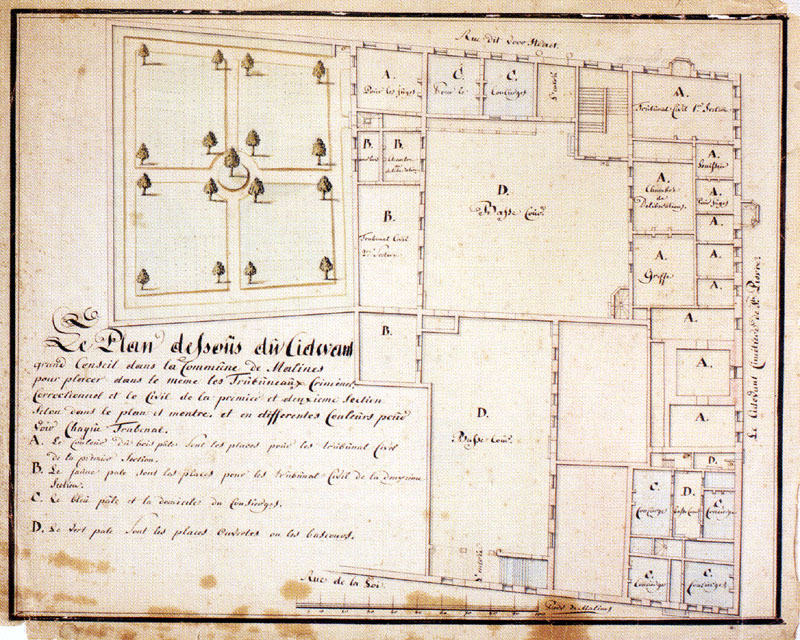 Rue dit voor Hazet
A.
Pour les juges
C.
C.
Concierges
L'entrée
A.
Tribunal Civil 1re Section
B.
B.
Chambre
de
A.
A.
Chambre
de
Deliberations.
A.
Pour juges
D.
Basse Cour.
B.
Tribunal Civil
2e Section
A.
A.
Greffe
A.
A.
B.
A.
A.
A.
D.
Basse Cour.
D.
C.
Concierge
D.
Basse Cour
C.
Concierge
C.
Concierge
C.
Concierges
L'entrée
Le Cidevant Cimetiere de St. Pierre
Le Plan dessoûs dû Cidevant
grand Conseil dans la Commûne de Malines
pour placer dans le meme les Tribûneaux Criminel,
Correctionnel et le Civil de la premier et deuxieme Section
Selon dans le plan et montre, et en differentes Couleurs pour
voir Chaque Tribunal.
A. Le Couleur du bois pâle sont les places pour les tribunal Civil
de la premier Section.
B. Le jaune pale sont les places pour les tribunal Civil de la deuxieme
Section.
C. Le bleû pâle et la domicile du Consierges.
D. Le vert pale sont les places Ouvertes ou les bascours.
Rue de la Loi
Pieds de Malines